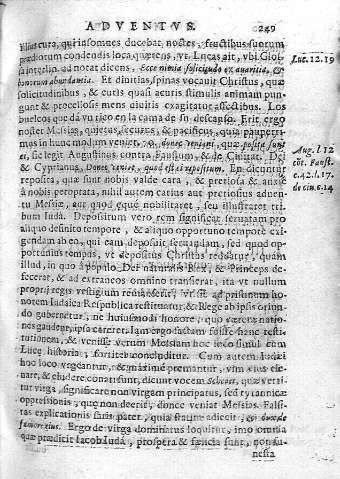 ADVENTVS. 249
illius cura, qui insomnes ducebat noctes, fructibus suorum
prædiorum condendis loca quærens, vt Lucas ait, vbi Glos-
sa interlin. ad notat dicens, Ecce nimia solicitudo ex auaritia, ex
bonorum abundantia. Et diuitias, spinas vocauit Christus, quia
solicitudinibus, & curis quasi acutis stimulis animam pun-
gunt & procellosis mens diuitis exagitatur affectibus. Los
buelcos que dá vn rico en la cama de su descanso. Erit ergo
noster Messias, quietus, securus, & pacificus, quia pauperri-
mus in hunc modum veniet, donec veniat, quæ posita sunt
ei, sic legit Augustinus contra Faustum, & de Ciuitat. Dei
& Cyprianus, Donec veniet, quod est ei repositum. Ea dicuntur
reposita, quæ sunt nobis valde cara, & pretiosa & anxiè
à nobis proprata, nihil autem catius aut pretiosius aduen-
tu Messiæ, aut quod æquè nobilitaret, seu illustraret tri-
bum Iuda. Depositum vero rem significat seruatam pro
aliquo definito tempore, & aliquo opportuno tempore exi-
gendam ab eo, qui eam deposuit seruandam, sed quod op-
portunius tempus, vt depositus Christus redeatur, quàm
illud, in quo à populo Dei naturalis Rex, & Princeps de-
fecerat, & ad extraneos omnino transierat, ita vt nullum
proprij regis vestigium remaneret, vt sic ad pristinum ho-
norem Iudaica Respublica restituatur, & illege ab ipsis oriun-
do gubernetur, ne huiusmodi honore, quo cæteræ natio-
nes gaudent, ipsa careret. Iam ergo factam fuisse hanc resti-
tutionem, & venisse verum Messiam hoc loco simul cum
Lucæ historia, fortiter concluditur. Cum autem Iudæi
hoc loco vrgeantur, & maximè premantur, vim eius elu-
nare, & eludere conantur, dicunt vocem Schebet, quæ verti-
tur virga, significare non virgam principatus, sed tyrannicæ
oppressionis, quæ non decrit, donec veniat Messias. Falsi-
tas explicationis satis patet, quia statim adiecit, & dux de
femore eius. Ergo de virga dominatus loquitur, imo omnia
quæ prædicit Iacob Iudæ, prospera & fœlicia sunt, non fu-
nesta
Luc. 12. 19
Aug. l 12
cõt. Faust.
c. 42. l. 17.
de ciu. c. 14